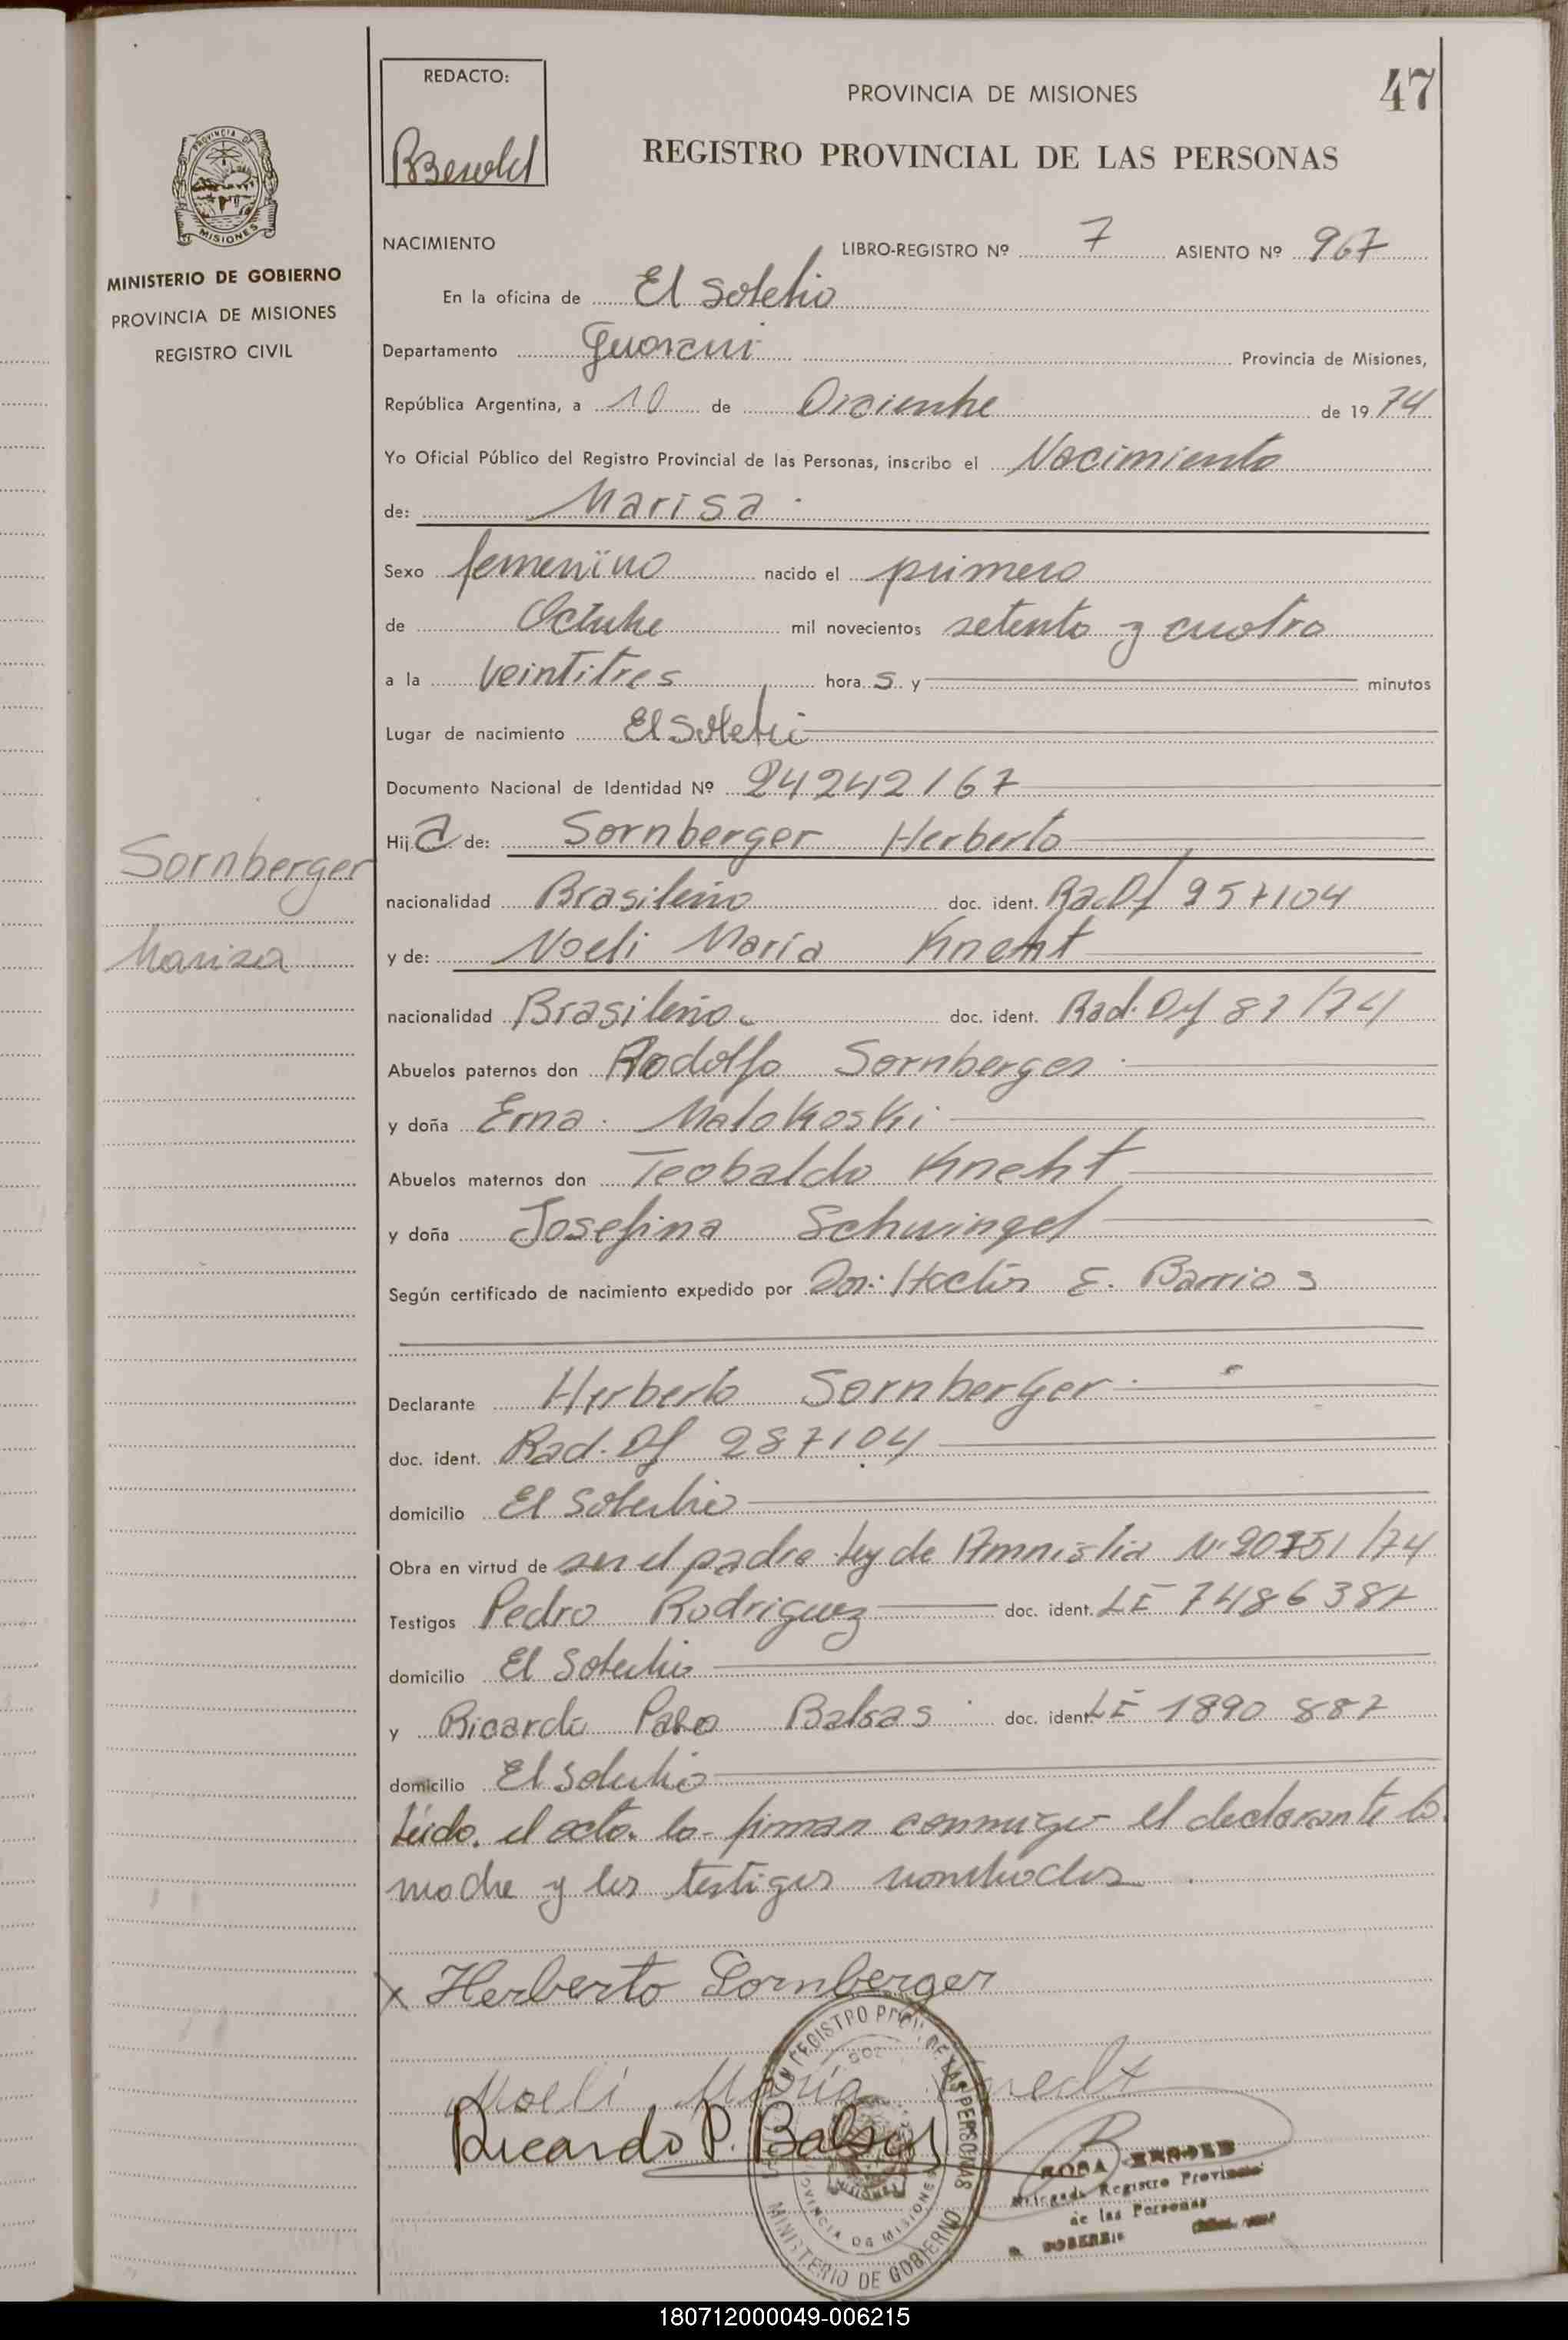 REDACTO:
PROVINCIA DE MISIONES
47
REGISTRO PROVINCIAL DE LAS PERSONAS
PROVINCIA DE
MISIONES
MINISTERIO DE GOBIERNO
PROVINCIA DE MISIONES
REGISTRO CIVIL
NACIMIENTO LIBRO-REGISTRO Nº 7 ASIENTO Nº 967
En la oficina de El Soberbio
Departamento Guarani Provincia de Misiones,
República Argentina, a 10 de Diciembre de 1974
Yo Oficial Público del Registro Provincial de las Personas, inscribo el Nacimiento
de: Marisa
Sexo femenino nacido el primero
de Octubre mil novecientos setenta y cuatro
a la veintitres hora s y minutos
Lugar de nacimiento El Soberbio
Documento Nacional de Identidad Nº 24242167
Hij a de: Sornberger Herberto
Sornberger
nacionalidad Brasileño doc. ident. Rad. Df 957104
Marisa
y de: Noeli María Kneht
nacionalidad Brasileño doc. ident. Rad. Df 87/74
Abuelos paternos don Rodolfo Sornberger
y doña Erna Malokoski
Abuelos maternos don Teobaldo Kneht
y doña Josefina Schwingel
Según certificado de nacimiento expedido por Dor: Hector E. Barrios
Declarante Herberto Sornberger
doc. ident. Rad. Df 287104
domicilio El Soberbio
Obra en virtud de ser el padre Ley de Amnistia Nº 20751/74
Testigos Pedro Rodriguez doc. ident. LE 7486387
domicilio El Soberbio
y Ricardo Pabo Balsas doc. ident. LE 1890 887
domicilio El Soberbio
Leido el acta lo firman conmigo el declarante la
madre y los testigos nombrados
x Herberto Sornberger
Noeli María Knecht
Ricardo P. Balsas
REGISTRO PROV. DE LAS PERSONAS
PROVINCIA DE MISIONES
MINISTERIO DE GOBIERNO
ROSA
Delegada Registro Provincial
de las Personas
180712000049-006215